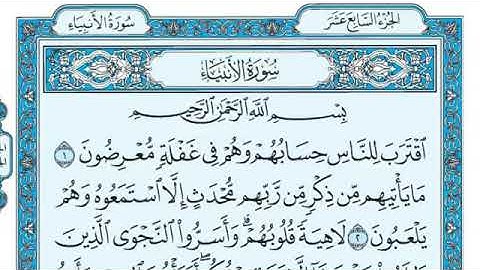 سُورَةُ الأَنْبِيَاءِ
الجُزْءُ السَّابِعَ عَشَرَ
سُورَةُ الأَنْبِيَاءِ
بِسْمِ اللَّهِ الرَّحْمَٰنِ الرَّحِيمِ
ٱقْتَرَبَ لِلنَّاسِ حِسَابُهُمْ وَهُمْ فِى غَفْلَةٍ مُّعْرِضُونَ ١
مَا يَأْتِيهِم مِّن ذِكْرٍ مِّن رَّبِّهِم مُّحْدَثٍ إِلَّا ٱسْتَمَعُوهُ وَهُمْ
يَلْعَبُونَ ٢ لَاهِيَةً قُلُوبُهُمْ ۗ وَأَسَرُّوا۟ ٱلنَّجْوَى ٱلَّذِينَ